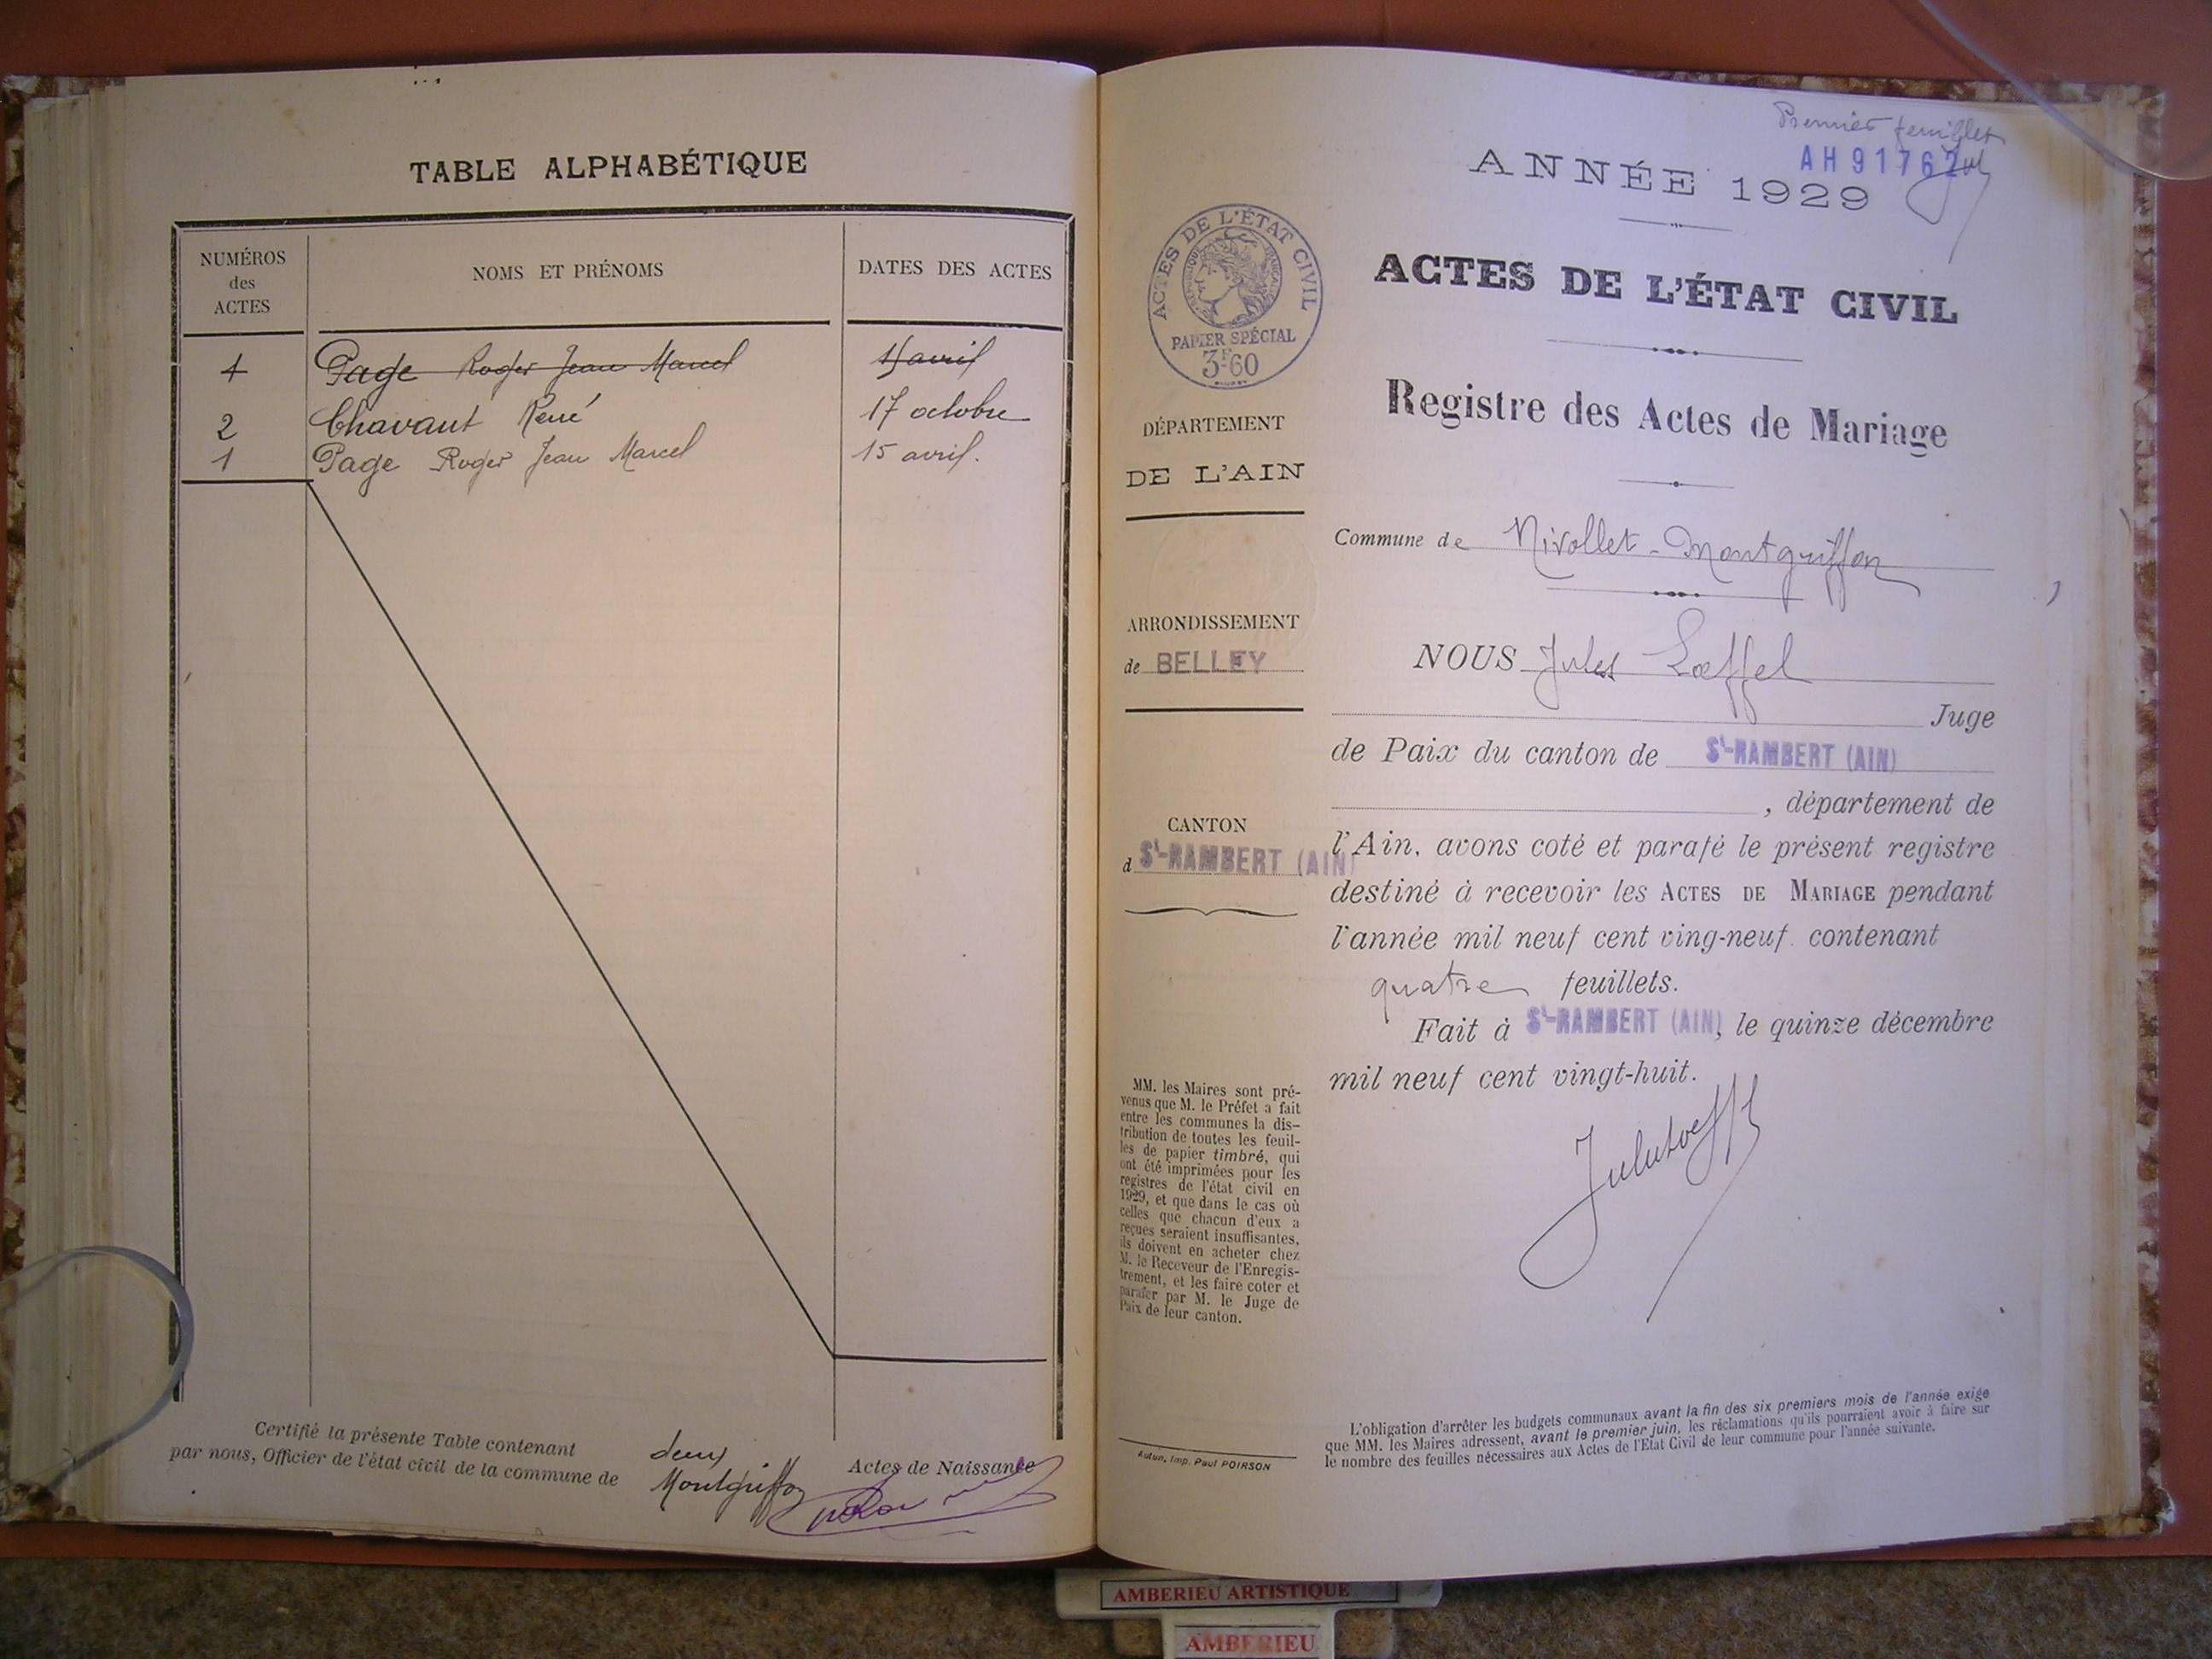 TABLE ALPHABÉTIQUE
NUMÉROS
des
ACTES
NOMS ET PRÉNOMS
DATES DES ACTES
1 Page Roger Jean Marcel 15 avril
2 Chavant René 17 octobre
1 Page Roger Jean Marcel 15 avril.
Certifié la présente Table contenant deux Actes de Naissance
par nous, Officier de l'état civil de la commune de Montgriffon
Premier feuillet
AH 91762
ANNÉE 1929
ACTES DE L'ÉTAT CIVIL
RÉPUBLIQUE FRANÇAISE
PAPIER SPÉCIAL
3F60
ACTES DE L'ÉTAT CIVIL
Registre des Actes de Mariage
DÉPARTEMENT
DE L'AIN
ARRONDISSEMENT
de BELLEY
CANTON
d St-RAMBERT (AIN)
MM. les Maires sont pré-
venus que M. le Préfet a fait
entre les communes la dis-
tribution de toutes les feuil-
les de papier timbré, qui
ont été imprimées pour les
registres de l'état civil en
1929, et que dans le cas où
celles que chacun d'eux a
reçues seraient insuffisantes,
ils doivent en acheter chez
M. le Receveur de l'Enregis-
trement, et les faire coter et
parafer par M. le Juge de
Paix de leur canton.
Autun, Imp. Paul POIRSON
Commune de Nivollet-Montgriffon
NOUS Jules Loeffel
Juge
de Paix du canton de St-RAMBERT (AIN)
, département de
l'Ain, avons coté et parafé le présent registre
destiné à recevoir les ACTES DE MARIAGE pendant
l'année mil neuf cent ving-neuf. contenant
quatre feuillets.
Fait à St-RAMBERT (AIN), le quinze décembre
mil neuf cent vingt-huit.
L'obligation d'arrêter les budgets communaux avant la fin des six premiers mois de l'année exige
que MM. les Maires adressent, avant le premier juin, les réclamations qu'ils pourraient avoir à faire sur
le nombre des feuilles nécessaires aux Actes de l'Etat Civil de leur commune pour l'année suivante.
AMBERIEU ARTISTIQUE
AMBERIEU